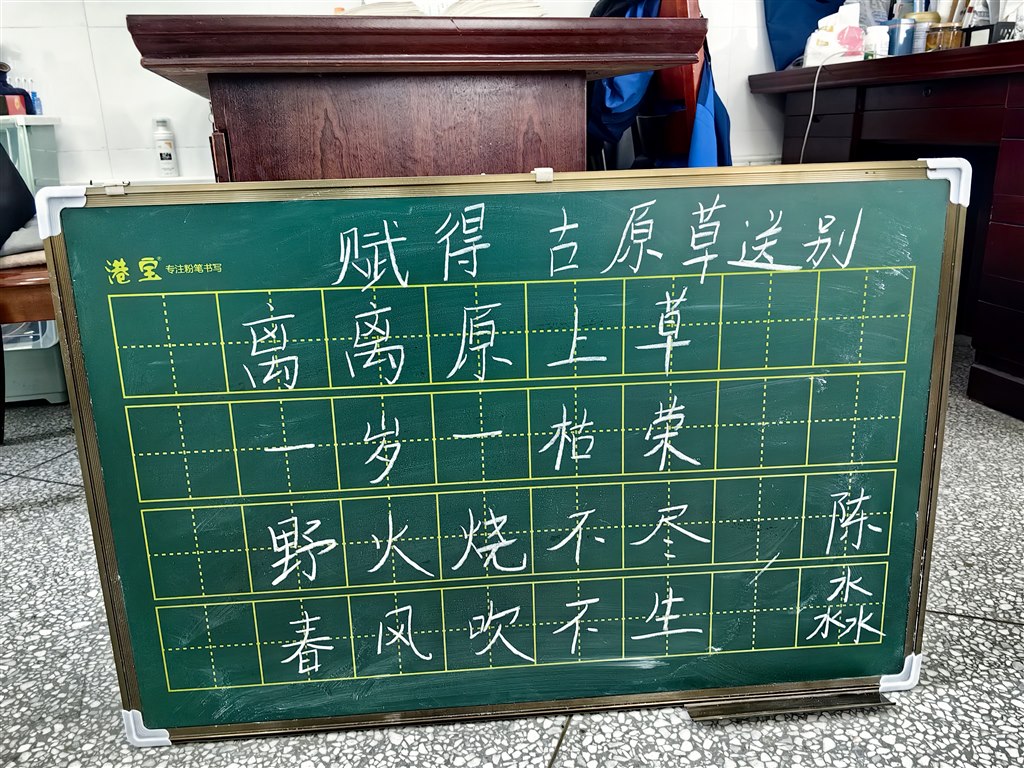 赋得 古原草送别
港宝 专注粉笔书写
离离原上草
一岁一枯荣
野火烧不尽
春风吹不生
陈淼